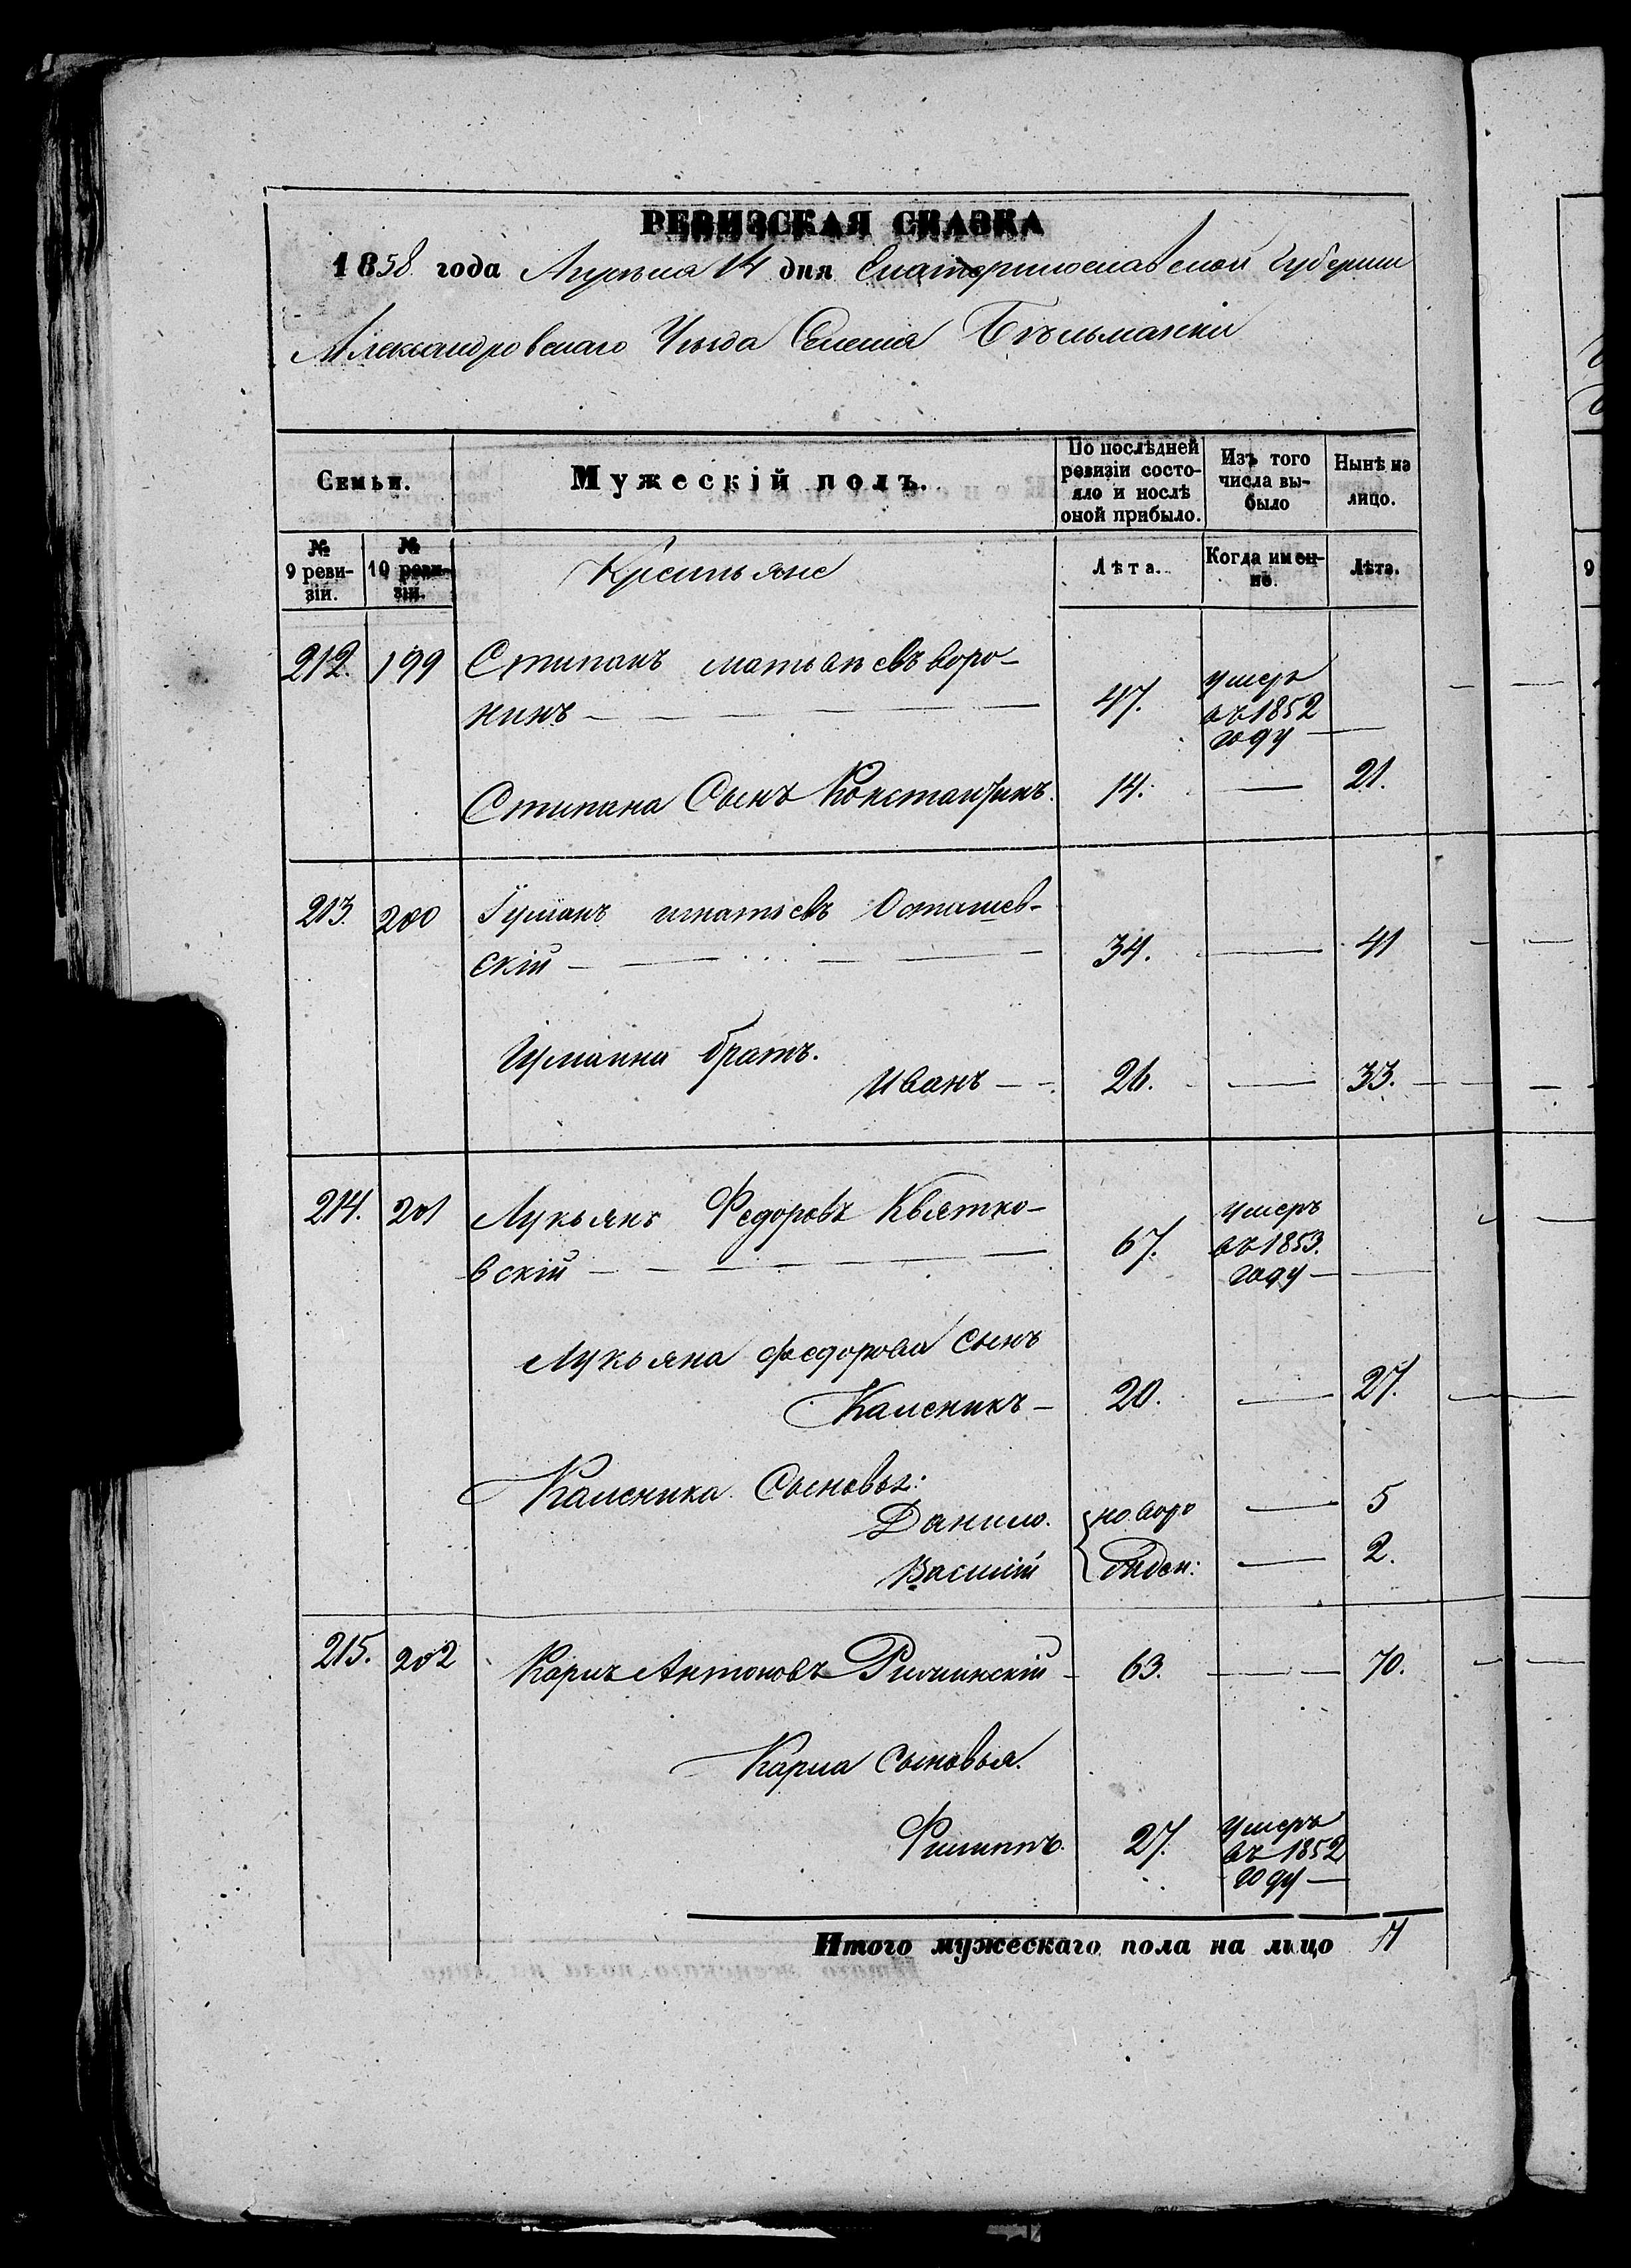 РЕВИЗСКАЯ СКАЗКА
1858 года Апреля 14 дня Екатеринославской Губернии
Александровскаго Уезда Селения Бѣльманки
Семьи.
Мужескій полъ.
По послѣдней ревизіи состояло и послѣ оной прибыло.
Изъ того числа выбыло
Нынѣ на лицо.
№ 9 ревизіи.
№ 10 ревизіи.
Крестьяне
Лѣта.
Когда именно.
Лѣта.
212. 199 Стипанъ матвѣевъ воро-
нинъ 47. умеръ въ 1852 году
Стипана Сынъ Константинъ. 14. 21.
213. 200 игнатьевъ Осташев-
скій 34. 41
братъ.
Иванъ 26. 33.
214. 201 Лукьянъ Федоровъ Квятко-
вскій 67. умеръ въ 1853. году
Лукьяна федорова сынъ
Каленикъ 20. 27.
Каленика Сыновья:
Данило. новоро 5
Василій жден: 2.
215. 202 Карпъ Антоновъ 63. 70.
Карпа Сыновья.
Филиппъ. 27. умеръ въ 1852 году
Итого мужескаго пола на лицо 7